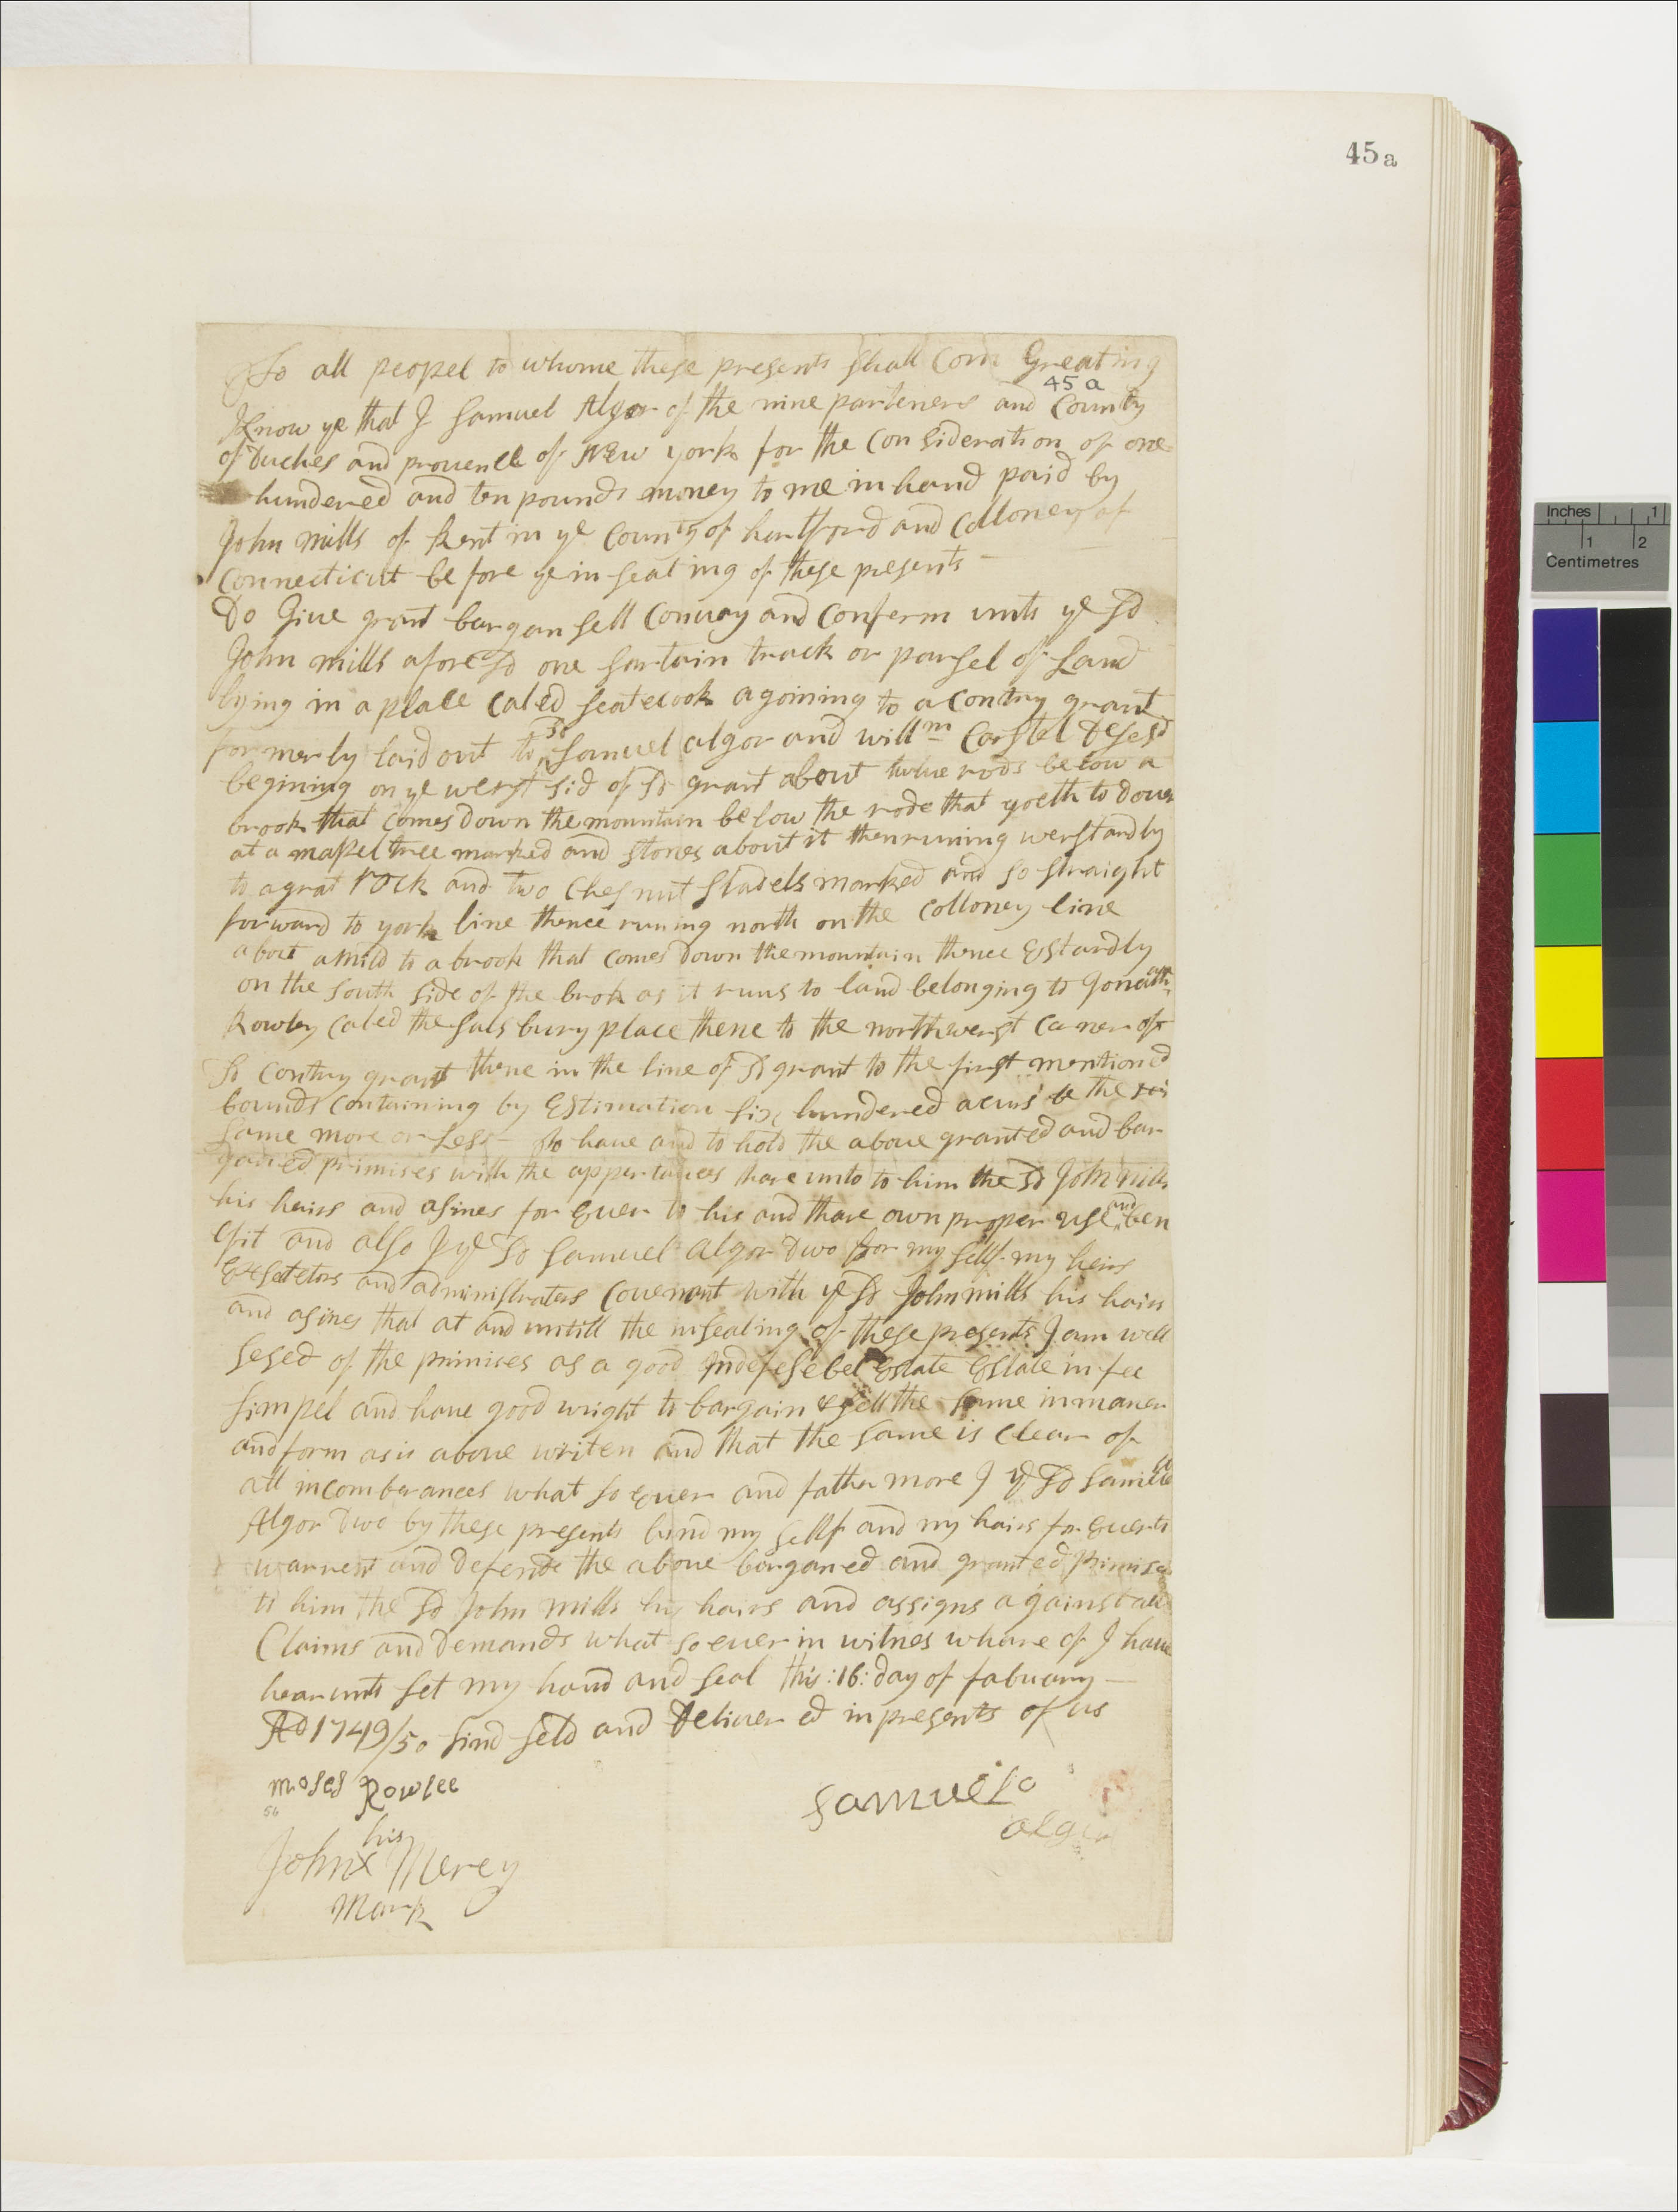 45a
To all peopel to whome these presents shall Com Greating
45 a
Know ye that I Samuel Algor of the nine parteners and County
of Duches and prouence of New york for the Consideration of one
hundered and ten pounds money to me in hand paid by
John mills of Kent in ye County of hartford and Colloney of
Connecticut be fore ye in sealing of these presents
Do Giue grant bargan sell Conuay and Conferm unto ye sd
John mills afore sd one sartain track or parsel of Land
lying in a place Caled scatecook agoining to a Contry grant
formerly laid out to sd Samuel algor and willm Carstel desesd
begining on ye werst sid of sd grant about twlue rods below a
brook that Comes down the mountain below the rode that goeth to Douer
at a mapel tree marked and stones about it then runing werstardly
to a grat rock and two Chesnut stadels marked and so straight
forward to york line thence runing north on the Colloney line
about a mild to a brook that Comes down the mountain thence Estardly
on the south side of the brok as it runs to land belonging to Jonathn
Rowley Caled the salsbury place thene to the northwerst Corner of
sd Contry grant thene in the line of sd grant to the first mentioned
bounds Containing by Estimation six hundered acurs be the
same more or Less to haue and to hold the aboue granted and bar
ganed primises with the appertances thare unto to him the sd John mills
his heirs and asines for Euer to his and thare own proper use and ben
efit and also I ye sd Samuel Algor Dwo for my self my heirs
Exsetetors and administrators Couenant with ye sd John mills his hairs
and asines that at and untill the insealing of these presents I am well
sesed of the primises as a good Indefesebel Estate Estate in fee
simpel and haue good wright to bargain & sell the same in maner
and form as is aboue writen and that the same is Clear of
all incomberances what so euer and father more I ye sd samuel
Algor Dwo by these presents bind my self and my hairs for Euer to
warrent and defende the aboue barganed and granted primises
to him the sd John mills his hairs and assigns against all
Claims and Demands what so euer in witnes whare of I haue
hearunto set my hand and seal this :16: day of fabuary
AD 1749/50 sind seld and Deliuer ed in presents of us
moses Rowlee
56
Samuel
algor
his
John x Merey
Mark
Inches 1
1 2
Centimetres